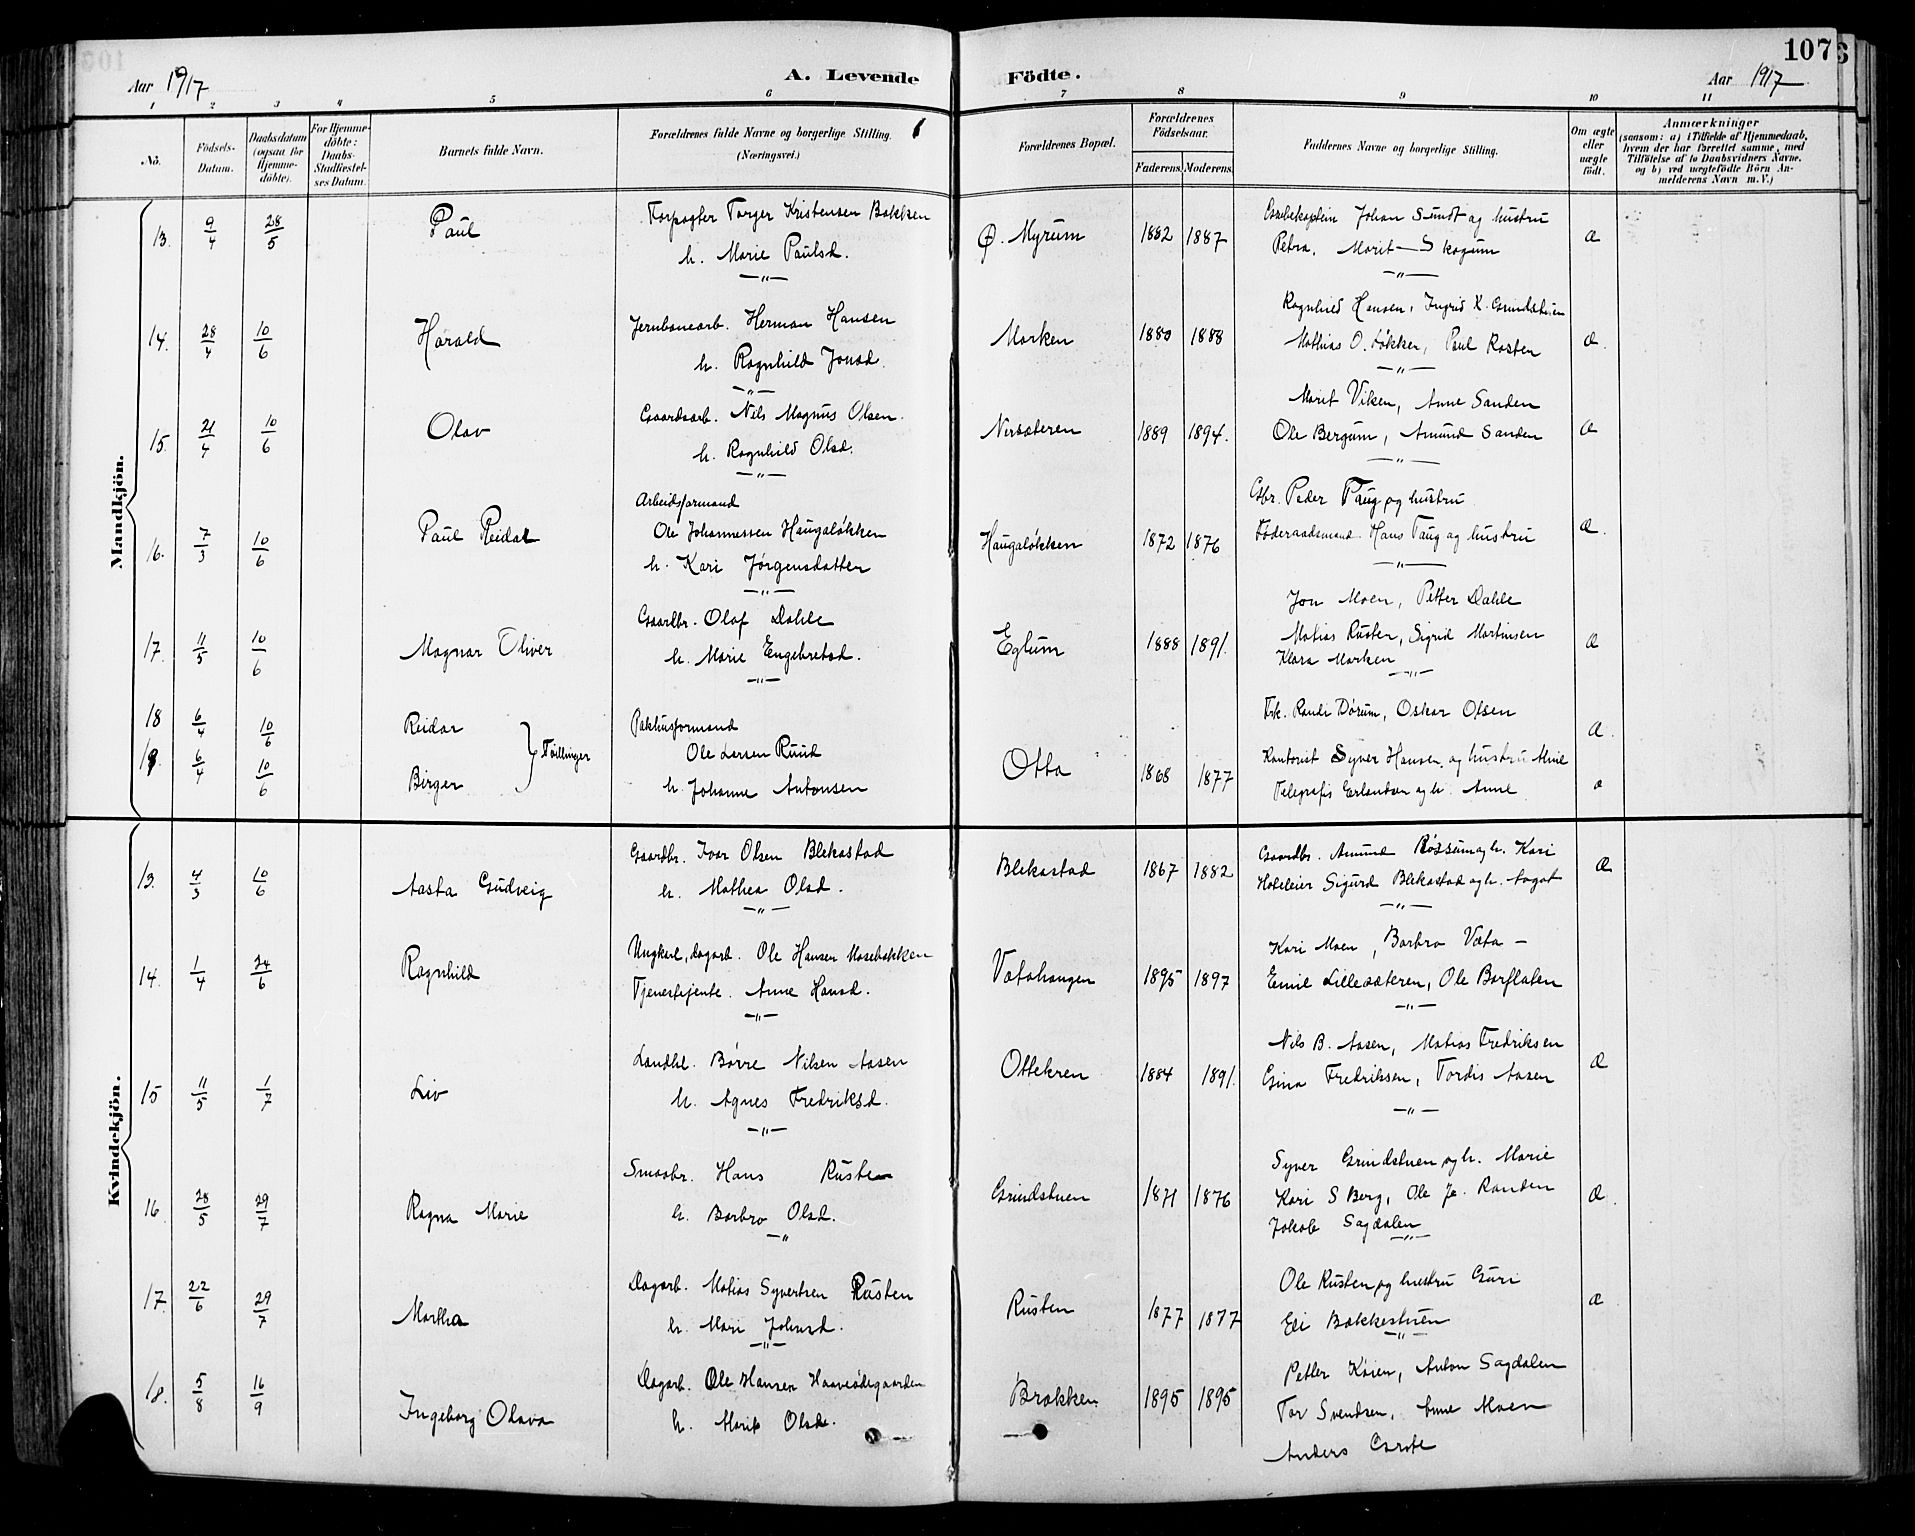 107
Aar 1917
A. Levende Födte.
Aar 1917
1 2 3 4 5 6 7 8 9 10 11
No.
Födsels-Datum.
Daabsdatum (ogsaa for Hjemme-döbte).
For Hjemme-döbte: Daabs-Stadfæstel-ses Datum.
Barnets fulde Navn.
Forældrenes fulde Navne og borgerlige Stilling. (Næringsvei.)
Forældrenes Bopæl.
Forældrenes Födselsaar.
Faderens. Moderens.
Faddernes Navne og borgerlige Stilling.
Om ægte eller uægte födt.
Anmærkninger
(saasom: a) i Tilfælde af Hjemmedaab,
hvem der har forrettet samme, med
Tilföielse af to Daabsvidners Navne,
og b) ved uægtefödte Börn An-
melderens Navn m. V.)
Mandkjön.
13. 9/4 28/5 Paul
Forpagter Torger Kristensen Bakken
h. Marie Paulsd.
Ø. Myrum 1882 1887
Johan Sundt og hustru
Petra. Marit Skogum
Æ
14. 28/4 10/6 Harald
Jernbanearb. Herman Hansen
h. Ragnhild Jonsd.
Morken 1880 1888
Ragnhild Hansen, Ingrid K. Grindstuen
Mathias O. Løkken, Paul Rosten
Æ.
15. 21/4 10/6 Olav
Gaardsarb. Nils Magnus Olsen.
h. Ragnhild Olsd.
Nersæteren 1889 1894.
Marit Viken, Anne Sanden
Ole Bergum, Amund Sanden
Æ
16. 7/3 10/6 Paul Reidar
Arbeidsformand
Ole Johannessen Haugaløkken
h. Kari Jørgensdatter
Haugaløkken 1872 1876
Gbr. Peder Taug og hustru
Føderaadsmand Hans Taug og hustru
Æ.
17. 11/5 10/6 Magnar Oliver
Gaardbr. Olaf Dahle
h. Marie Engebretsd.
Eglum 1888 1891.
Jon Moen, Petter Dahle
Matias Rusten, Sigrid Martinsen
Klara Morken
Æ
18 6/4 10/6 Reidar
19. 6/4 10/6 Birger
Tvillinger
Pakhusformand
Ole Larsen Ruud
h. Johanne Antonsen
Otta 1868 1877
Frk. Randi Dørum, Oskar Olsen
Kontorist Syver Hansen og hustru Mine
Telegrafis Erlandsen og h. Anne
Æ.
Æ
Kvindekjön.
13. 4/3 10/6 Aasta Gudveig
Gaardbr. Ivar Olsen Blekastad
h. Mathea Olsd.
Blekastad 1867 1882
Gaardbr. Amund Røssum og h. Kari
Hoteleier Sigurd Blekastad og h. Aagot
Æ
14. 1/4 24/6 Ragnhild
Ungkarl, dagarb. Ole Hansen Mosebakken
Tjenestejente. Anne Hansd.
Vatahaugen 1895 1897
Kari Moen, Barbro Vata –
Emil Lillesæteren, Ole Borflaten
15 11/5 1/7 Liv
Landhl. Børre Nilsen Aasen
h. Agnes Fredriksd.
Ottekren 1884 1891.
Nils B. Aasen, Matias Fredriksen
Gina Fredriksen, Tordis Aasen
Æ
16. 28/5 29/7 Ragna Marie
Smaabr. Hans Rusten
h. Barbro Olsd.
Grindstuen 1871 1876
Syver Grindstuen og h. Marie
Kari S Berg, Ole Jo. Randen
Jakob Sagdalen
Æ.
17. 22/6 29/7 Martha
Dagarb. Matias Syvertsen Rusten
h. Mari Johnsd.
Rusten 1877 1877
Ole Rusten og hustru Guri
Eli Bakkestuen
Æ
18. 5/8 16/9 Ingeborg Olava
Dagarb. Ole Hansen Haaveødegaarden
h. Marit Olsd.
Brækken 1895 1895
Petter Køien, Anton Sagdalen
Tor Svendsen, Anne Moen
Anders Grote